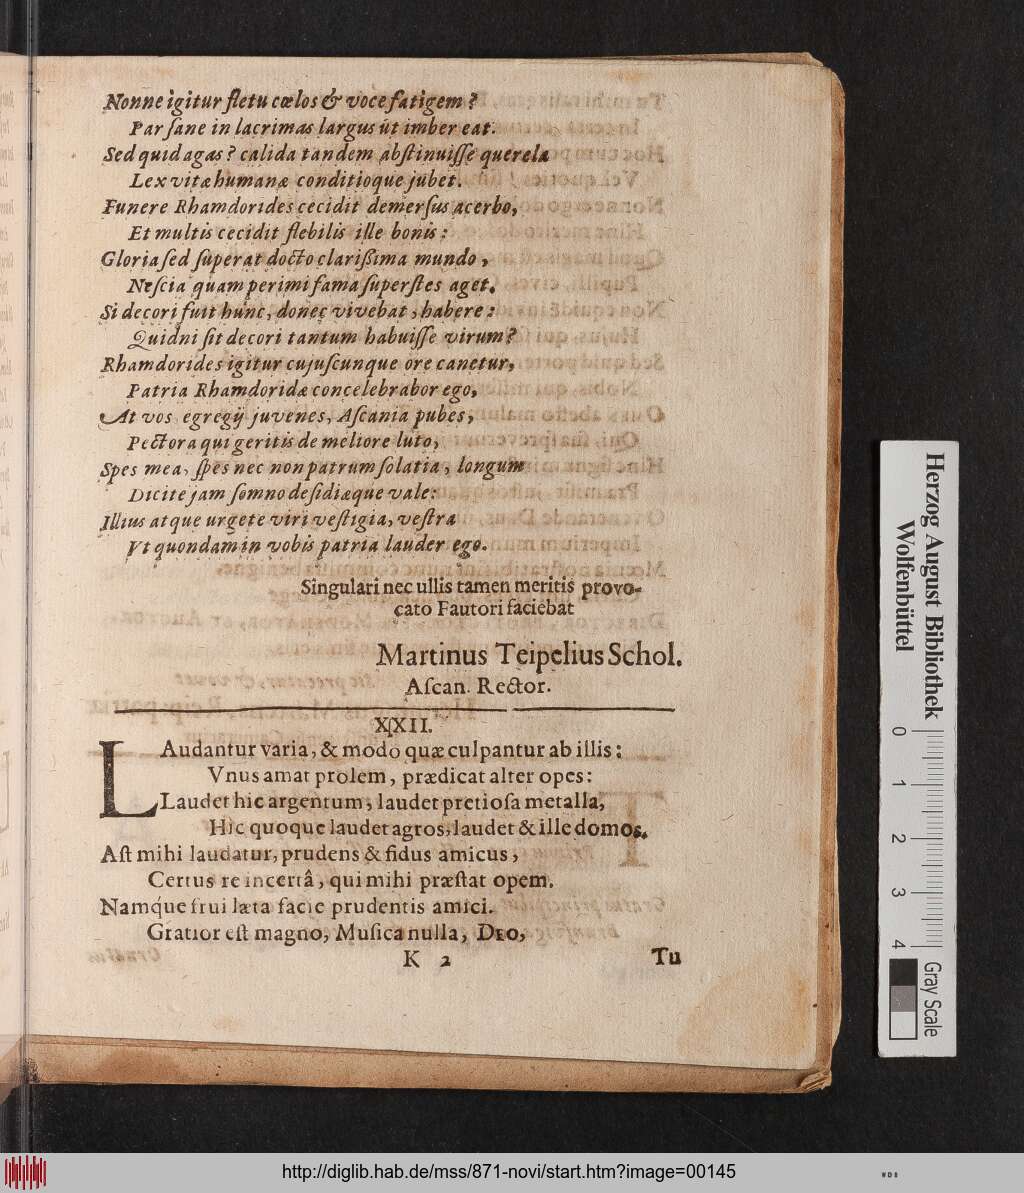 Nonne igitur fletu cœlos & voce fatigem?
Par ſane in lacrimas largus ut imber eat.
Sed quid agas? calida tandem abſtinuiſſe querela
Lex vitæ humanæ conditioque jubet.
Funere Rhamdorides cecidit demerſus acerbo,
Et multis cecidit flebilis ille bonis:
Gloria ſed ſuperat docto clariſſima mundo,
Neſcia quam perimi fama ſuperſtes aget.
Si decori fuit hunc, donec vivebat, habere:
Quidni ſit decori tantum habuiſſe virum?
Rhamdorides igitur cujuſcunque ore canetur,
Patria Rhamdoridæ concelebrabor ego,
At vos egregij juvenes, Aſcania pubes,
Pectora qui geritis de meliore luto,
Spes mea, ſpes nec non patrum ſolatia, longum
Dicite jam ſomno deſidiæque vale:
Illius atque urgete viri veſtigia, veſtra
Vt quondam in vobis patria lauder ego.
Singulari nec ullis tamen meritis provo-
cato Fautori faciebat
Martinus Teipelius Schol.
Aſcan. Rector.
XXII.
LAudantur varia, & modo quæ culpantur ab illis:
Vnus amat prolem, prædicat alter opes:
Laudet hic argentum, laudet pretioſa metalla,
Hic quoque laudet agros, laudet & ille domos.
Aſt mihi laudatur, prudens & fidus amicus,
Certus re incertâ, qui mihi præſtat opem.
Namque frui læta facie prudentis amici.
Gratior eſt magno, Muſica nulla, Deo,
K 2 Tu
Herzog August Bibliothek
Wolfenbüttel
0 1 2 3 4
Gray Scale
http://diglib.hab.de/mss/871-novi/start.htm?image=00145
WDB